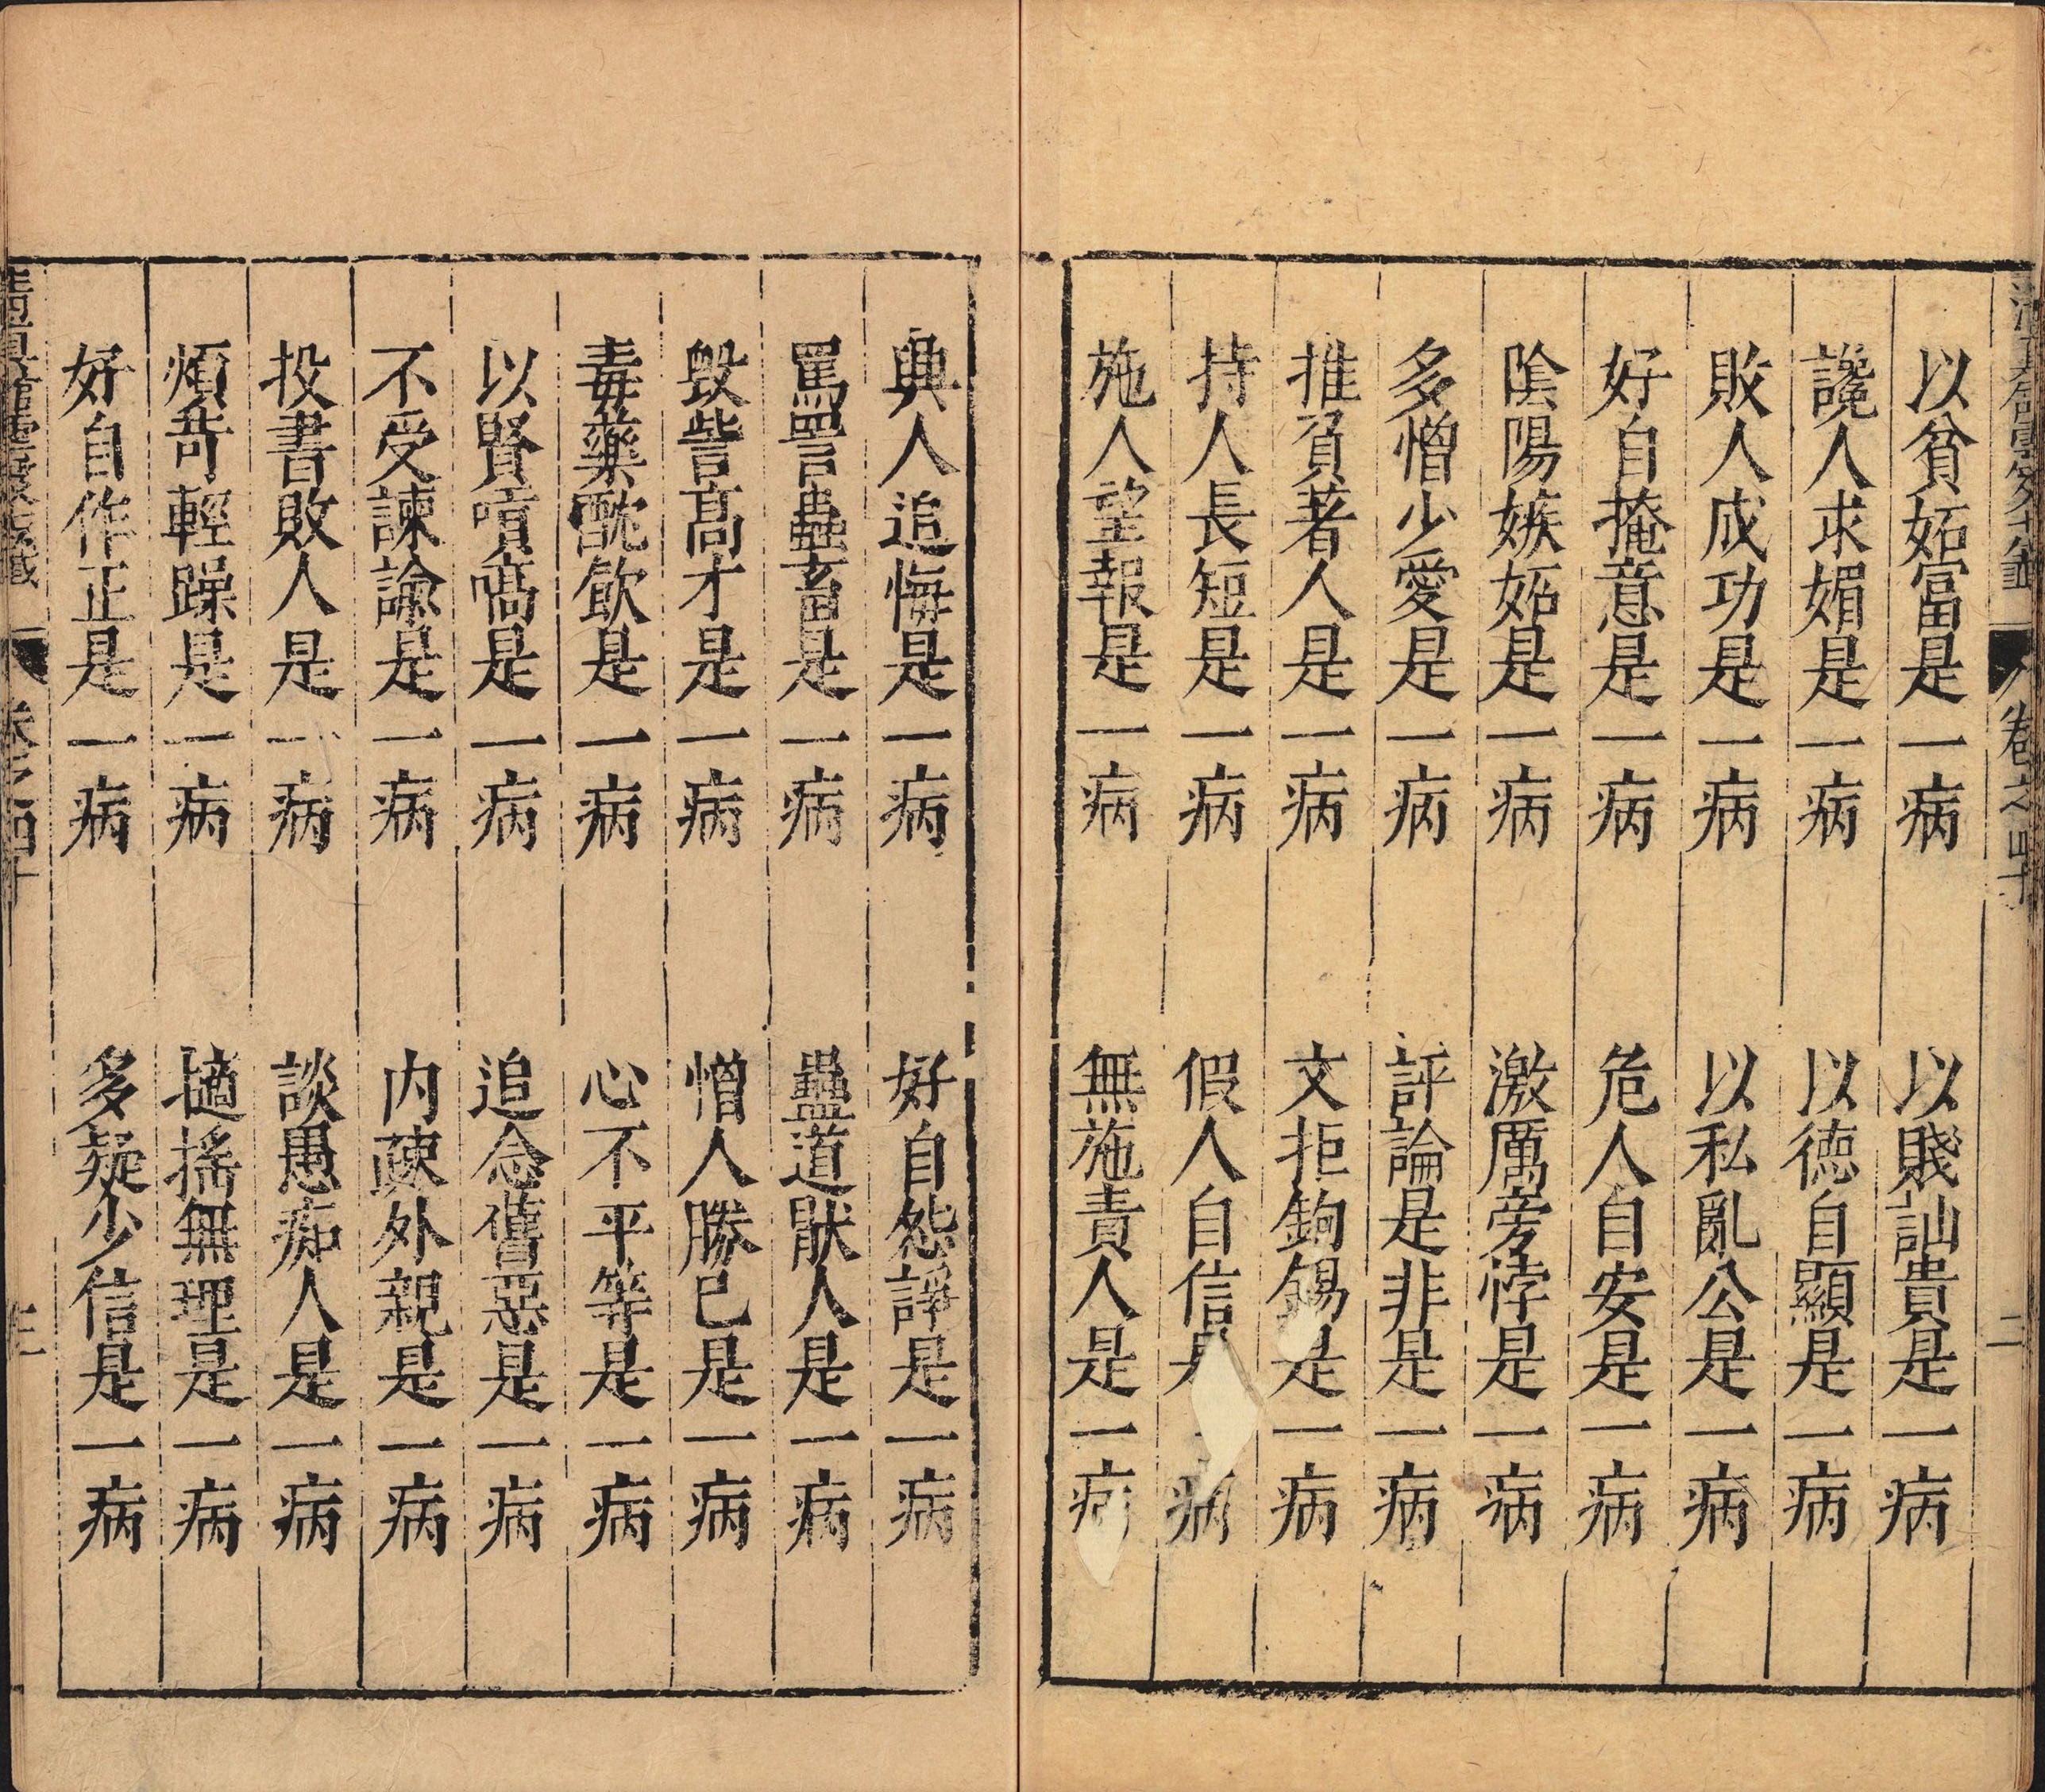 卷之四十 二
以貧妬富是一病 以賤訕貴是一病
讒人求媚是一病 以徳自顯是一病
敗人成功是一病 以私亂公是一病
好自掩意是一病 危人自安是一病
陰陽嫉妬是一病 激厲旁悖是一病
多憎少愛是一病 評論是非是一病
推負著人是一病 文拒鉤錫是一病
持人長短是一病 假人自信是一病
施人望報是一病 無施責人是一病
與人追悔是一病 好自怨諍是一病
罵詈蟲畜是一病 蠱道猒人是一病
毀訾髙才是一病 憎人勝已是一病
毒藥酖飲是一病 心不平等是一病
以賢嘳嗃是一病 追念舊惡是一病
不受諫諭是一病 内疎外親是一病
投書敗人是一病 談愚痴人是一病
煩苛輕躁是一病 擿搖無理是一病
好自作正是一病 多疑少信是一病